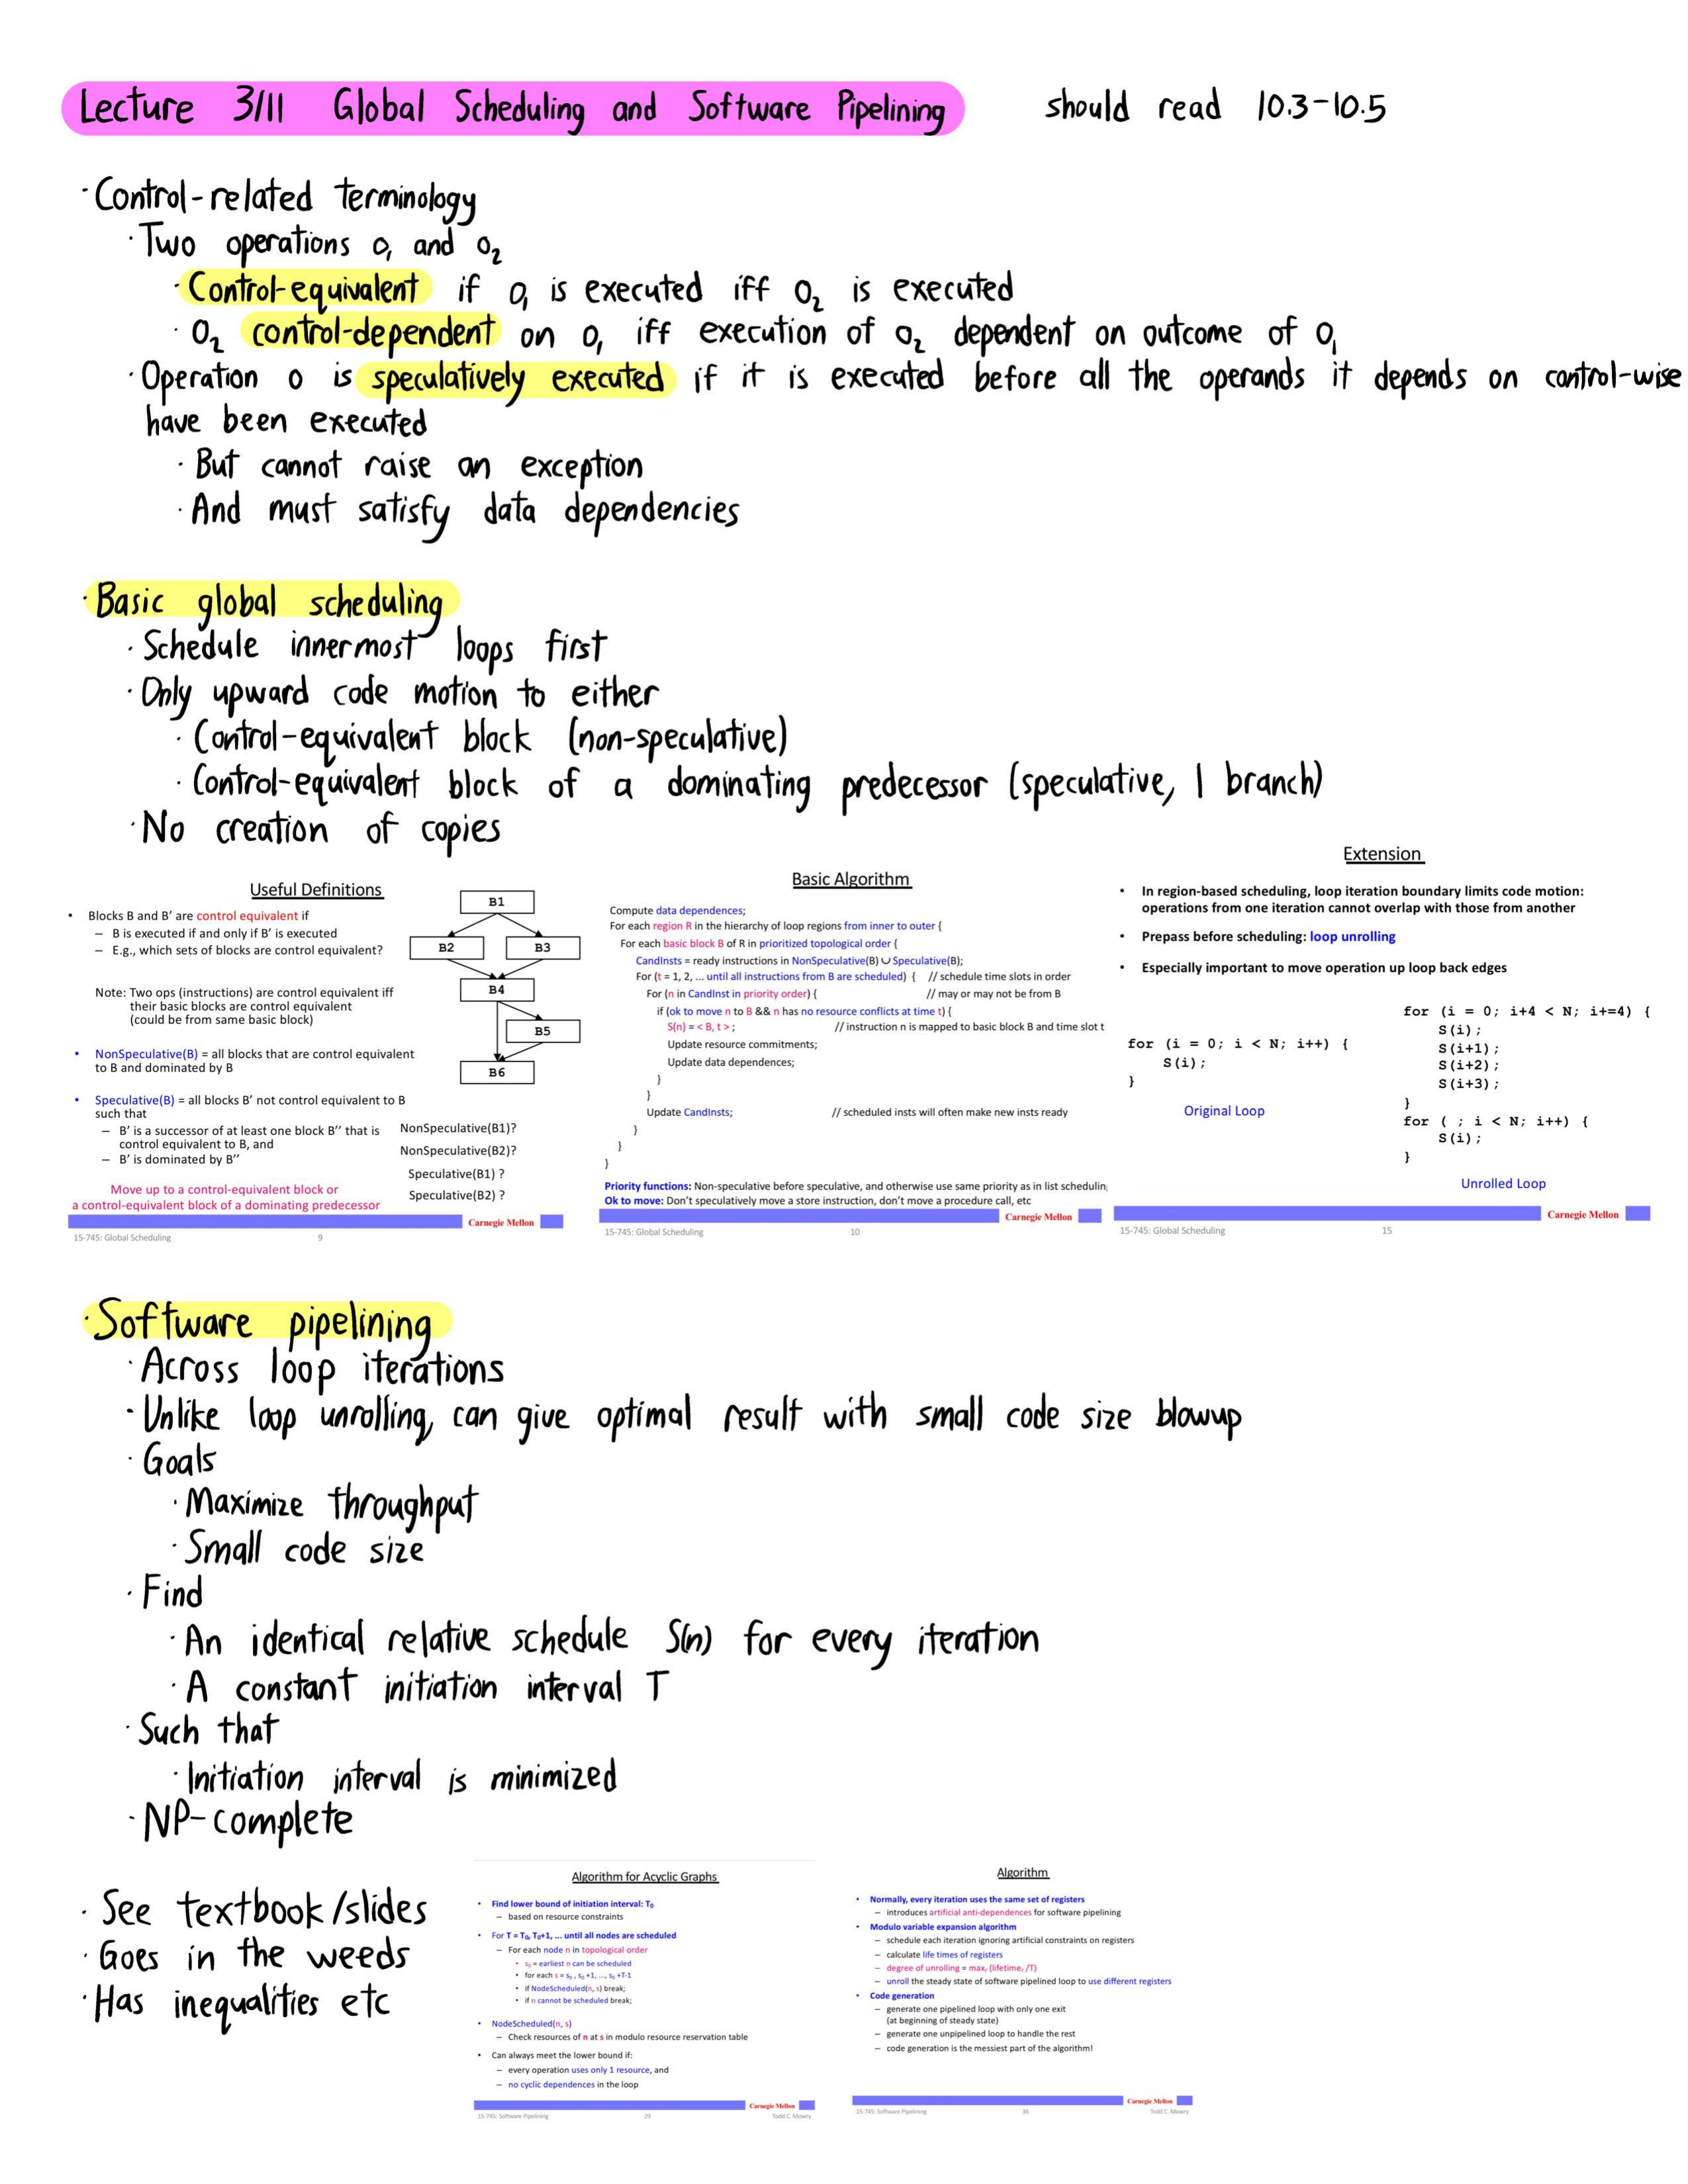 Lecture 3/11 Global Scheduling and Software Pipelining should read 10.3-10.5
· Control-related terminology
· Two operations o₁ and o₂
· Control-equivalent if o₁ is executed iff o₂ is executed
· O₂ control-dependent on o₁ iff execution of o₂ dependent on outcome of o₁
· Operation o is speculatively executed if it is executed before all the operands it depends on control-wise
have been executed
· But cannot raise an exception
· And must satisfy data dependencies
· Basic global scheduling
· Schedule innermost loops first
· Only upward code motion to either
· Control-equivalent block (non-speculative)
· Control-equivalent block of a dominating predecessor (speculative, 1 branch)
· No creation of copies
Useful Definitions
• Blocks B and B’ are control equivalent if
– B is executed if and only if B’ is executed
– E.g., which sets of blocks are control equivalent?
Note: Two ops (instructions) are control equivalent iff
their basic blocks are control equivalent
(could be from same basic block)
• NonSpeculative(B) = all blocks that are control equivalent
to B and dominated by B
• Speculative(B) = all blocks B’ not control equivalent to B
such that
– B’ is a successor of at least one block B’’ that is
control equivalent to B, and
– B’ is dominated by B’’
Move up to a control-equivalent block or
a control-equivalent block of a dominating predecessor
B1
B2
B3
B4
B5
B6
NonSpeculative(B1)?
NonSpeculative(B2)?
Speculative(B1) ?
Speculative(B2) ?
Carnegie Mellon
15-745: Global Scheduling 9
Basic Algorithm
Compute data dependences;
For each region R in the hierarchy of loop regions from inner to outer {
For each basic block B of R in prioritized topological order {
CandInsts = ready instructions in NonSpeculative(B) ∪ Speculative(B);
For (t = 1, 2, ... until all instructions from B are scheduled) { // schedule time slots in order
For (n in CandInst in priority order) { // may or may not be from B
if (ok to move n to B && n has no resource conflicts at time t) {
S(n) = < B, t > ; // instruction n is mapped to basic block B and time slot t
Update resource commitments;
Update data dependences;
}
}
Update CandInsts; // scheduled insts will often make new insts ready
}
}
}
Priority functions: Non-speculative before speculative, and otherwise use same priority as in list schedulin
Ok to move: Don’t speculatively move a store instruction, don’t move a procedure call, etc
Carnegie Mellon
15-745: Global Scheduling 10
Extension
• In region-based scheduling, loop iteration boundary limits code motion:
operations from one iteration cannot overlap with those from another
• Prepass before scheduling: loop unrolling
• Especially important to move operation up loop back edges
for (i = 0; i < N; i++) {
S(i);
}
Original Loop
for (i = 0; i+4 < N; i+=4) {
S(i);
S(i+1);
S(i+2);
S(i+3);
}
for ( ; i < N; i++) {
S(i);
}
Unrolled Loop
Carnegie Mellon
15-745: Global Scheduling 15
· Software pipelining
· Across loop iterations
· Unlike loop unrolling, can give optimal result with small code size blowup
· Goals
· Maximize throughput
· Small code size
· Find
· An identical relative schedule S(n) for every iteration
· A constant initiation interval T
· Such that
· Initiation interval is minimized
· NP-complete
· See textbook/slides
· Goes in the weeds
· Has inequalities etc
Algorithm for Acyclic Graphs
• Find lower bound of initiation interval: T₀
– based on resource constraints
• For T = T₀, T₀+1, ... until all nodes are scheduled
– For each node n in topological order
• s₀ = earliest n can be scheduled
• for each s = s₀ , s₀ +1, ..., s₀ +T-1
• if NodeScheduled(n, s) break;
• if n cannot be scheduled break;
• NodeScheduled(n, s)
– Check resources of n at s in modulo resource reservation table
• Can always meet the lower bound if:
– every operation uses only 1 resource, and
– no cyclic dependences in the loop
Carnegie Mellon
15-745: Software Pipelining 29 Todd C. Mowry
Algorithm
• Normally, every iteration uses the same set of registers
– introduces artificial anti-dependences for software pipelining
• Modulo variable expansion algorithm
– schedule each iteration ignoring artificial constraints on registers
– calculate life times of registers
– degree of unrolling = maxᵣ (lifetimeᵣ /T)
– unroll the steady state of software pipelined loop to use different registers
• Code generation
– generate one pipelined loop with only one exit
(at beginning of steady state)
– generate one unpipelined loop to handle the rest
– code generation is the messiest part of the algorithm!
Carnegie Mellon
15-745: Software Pipelining 36 Todd C. Mowry